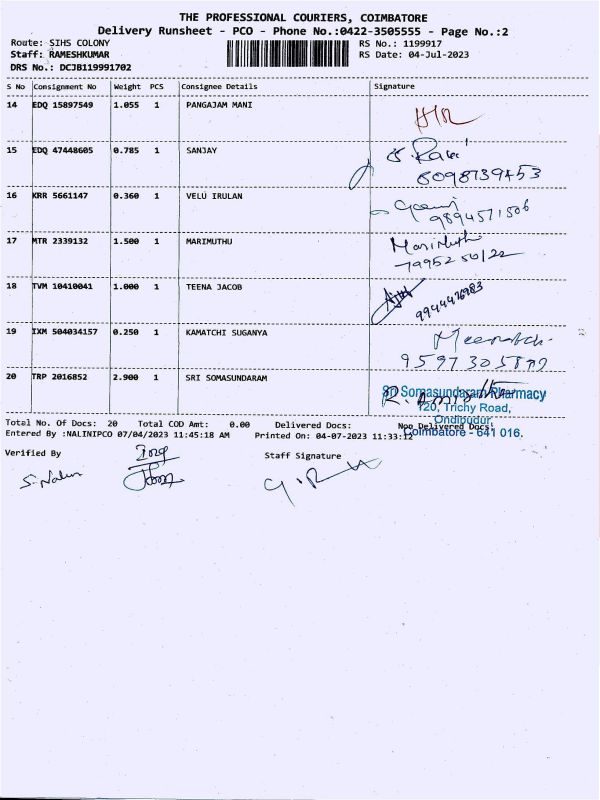 THE PROFESSIONAL COURIERS, COIMBATORE
Delivery Runsheet - PCO - Phone No.:0422-3505555 - Page No.:2
Route: SIHS COLONY RS No.: 1199917
Staff: RAMESHKUMAR RS Date: 04-Jul-2023
DRS No.: DCJB119991702
S No Consignment No Weight PCS Consignee Details Signature
14 EDQ 15897549 1.055 1 PANGAJAM MANI
15 EDQ 47448605 0.785 1 SANJAY
16 KRR 5661147 0.360 1 VELU IRULAN
9894571506
17 MTR 2339132 1.500 1 MARIMUTHU
Marimuthu
18 TVM 10410041 1.000 1 TEENA JACOB
19 IXM 504034157 0.250 1 KAMATCHI SUGANYA
20 TRP 2016852 2.900 1 SRI SOMASUNDARAM
Sri Somasundaram Pharmacy
120, Trichy Road,
Ondipudur,
Coimbatore - 641 016.
Total No. Of Docs: 20 Total COD Amt: 0.00 Delivered Docs: Non Delivered Docs:
Entered By :NALINIPCO 07/04/2023 11:45:18 AM Printed On: 04-07-2023 11:33:12
Verified By Staff Signature